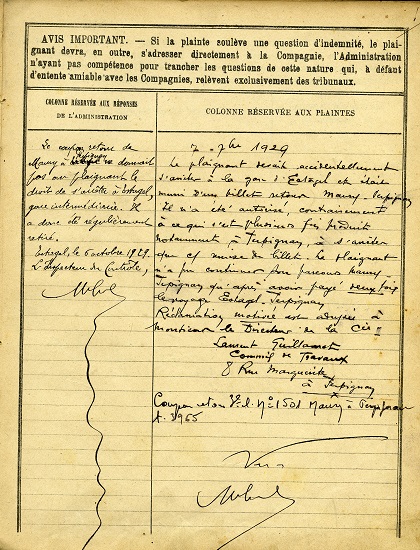 AVIS IMPORTANT. — Si la plainte soulève une question d'indemnité, le plai-
gnant devra, en outre, s'adresser directement à la Compagnie, l'Administration
n'ayant pas compétence pour trancher les questions de cette nature qui, à défaut
d'entente amiable avec les Compagnies, relèvent exclusivement des tribunaux.
COLONNE RÉSERVÉE AUX RÉPONSES
DE L'ADMINISTRATION
Le coupon retour de
Maury à Perpignan ne donnait
pas au plaignant le
droit de s'arrêter à Estagel,
gare intermédiaire. Il
a donc été régulièrement
retiré.
Estagel, le 6 octobre 1929.
L'Inspecteur du Contrôle,
COLONNE RÉSERVÉE AUX PLAINTES
7bre 1929
Le plaignant
s'arrêter à la gare d'Estagel et étant
muni d'un billet retour Maury-Perpignan
Il n'a été autorisé, contrairement
à ce qui s'est plusieurs fois produit
notamment à Perpignan, à s'arrêter
muni de billet. Le plaignant
n'a pu continuer son parcours Maury-
Perpignan qu'après avoir payé deux fois
le voyage Estagel-Perpignan
Réclamation motivée est adressée à
Monsieur le Directeur de la Cie
Laurent Guillamet
Commis de Travaux
8 Rue Marguerite
à Perpignan
Coupon retour No 1501 Maury à Perpignan
1965
Vu